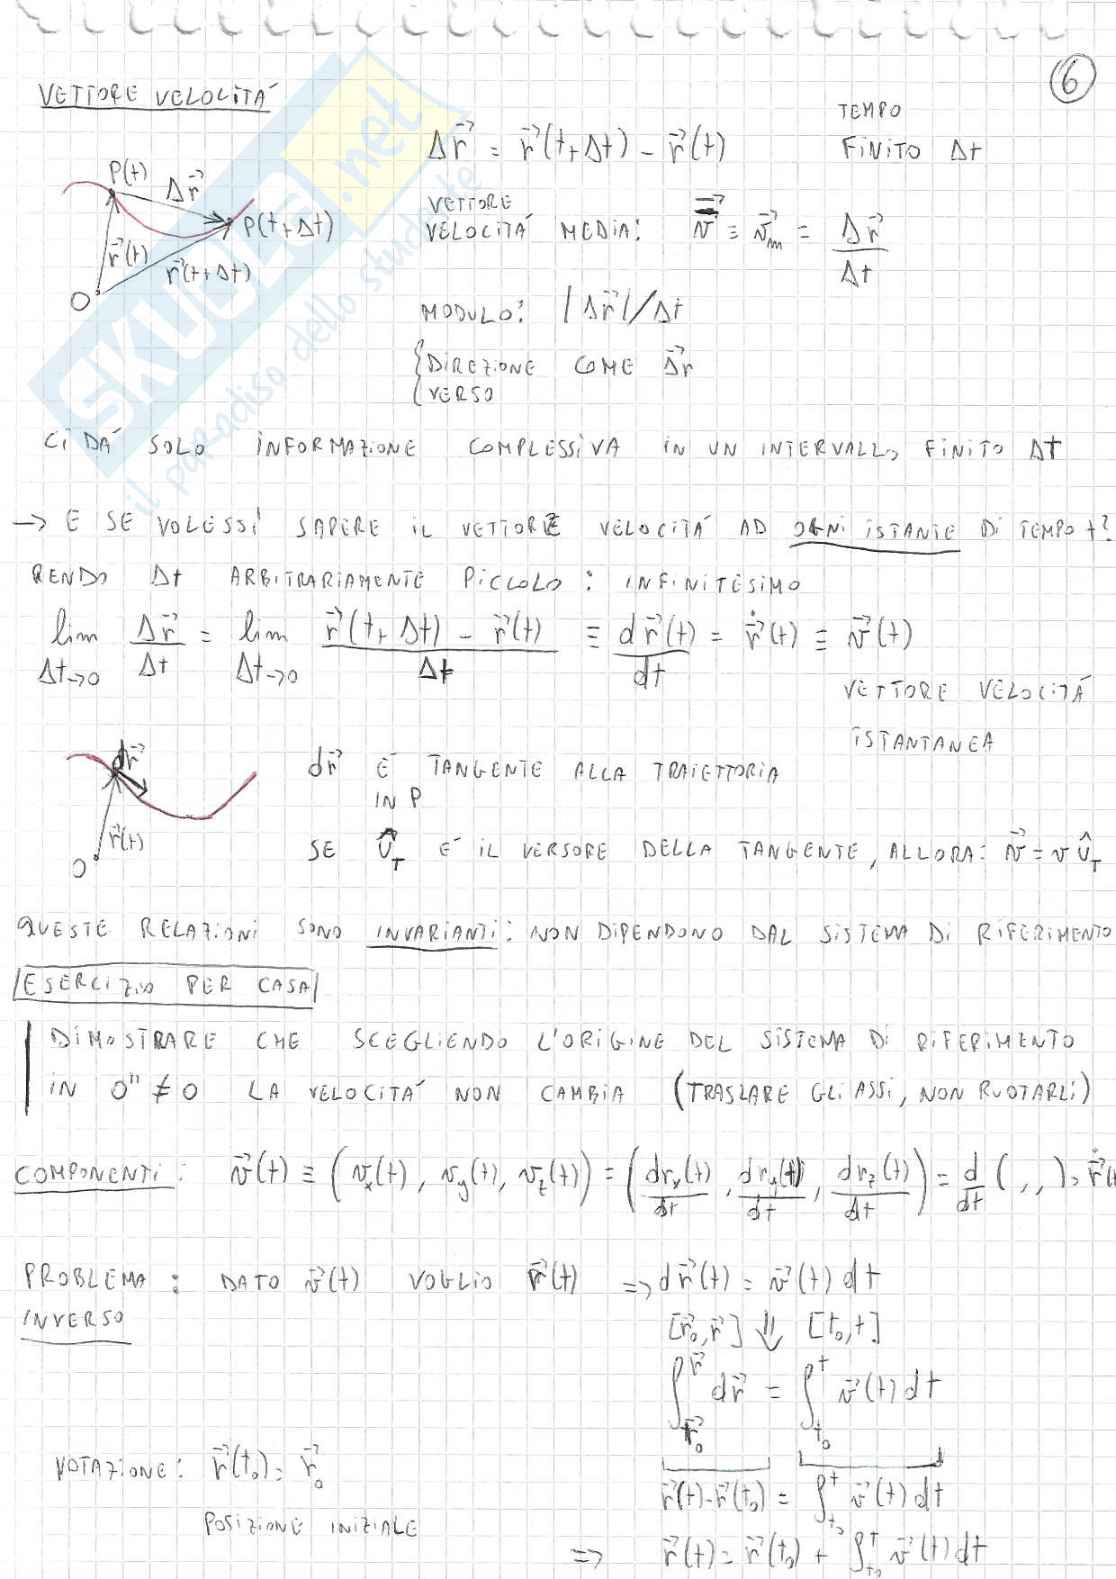 6
VETTORE VELOCITÁ
Δr⃗ = r⃗(t+Δt) - r⃗(t)
TEMPO
FINITO Δt
P(t)
Δr⃗
P(t+Δt)
r⃗(t)
r⃗(t+Δt)
O
VETTORE
VELOCITÁ MEDIA: v̄⃗ ≡ v⃗m = Δr⃗/Δt
MODULO: |Δr⃗|/Δt
{DIREZIONE COME Δr⃗
{VERSO
CI DÁ SOLO INFORMAZIONE COMPLESSIVA IN UN INTERVALLO FINITO Δt
-> E SE VOLESSI SAPERE IL VETTORE VELOCITÁ AD OGNI ISTANTE DI TEMPO t?
RENDO Δt ARBITRARIAMENTE PICCOLO: INFINITESIMO
lim Δt→0 Δr⃗/Δt = lim Δt→0 (r⃗(t+Δt) - r⃗(t))/Δt ≡ dr⃗(t)/dt = ṙ⃗(t) ≡ v⃗(t)
VETTORE VELOCITÁ
ISTANTANEA
dr⃗
r⃗(t)
O
dr⃗ É TANGENTE ALLA TRAIETTORIA
IN P
SE Û_T É IL VERSORE DELLA TANGENTE, ALLORA: v⃗ = v Û_T
QUESTE RELAZIONI SONO INVARIANTI: NON DIPENDONO DAL SISTEMA DI RIFERIMENTO
ESERCIZIO PER CASA
DIMOSTRARE CHE SCEGLIENDO L'ORIGINE DEL SISTEMA DI RIFERIMENTO
IN O" ≠ O LA VELOCITÁ NON CAMBIA (TRASLARE GLI ASSI, NON RUOTARLI)
COMPONENTI: v⃗(t) ≡ (vx(t), vy(t), vz(t)) = (drx(t)/dt, dry(t)/dt, drz(t)/dt) = d/dt ( , , ) = ṙ⃗(t
PROBLEMA: DATO v⃗(t) VOGLIO r⃗(t) => dr⃗(t) = v⃗(t) dt
INVERSO
[r⃗₀, r⃗] ⇓ [t₀, t]
∫_r⃗₀^r⃗ dr⃗ = ∫_t₀^t v⃗(t) dt
NOTAZIONE: r⃗(t₀) = r⃗₀
POSIZIONE INIZIALE
r⃗(t) - r⃗(t₀) = ∫_t₀^t v⃗(t) dt
=> r⃗(t) = r⃗(t₀) + ∫_t₀^t v⃗(t) dt
SKUOLA.net
il paradiso dello studente